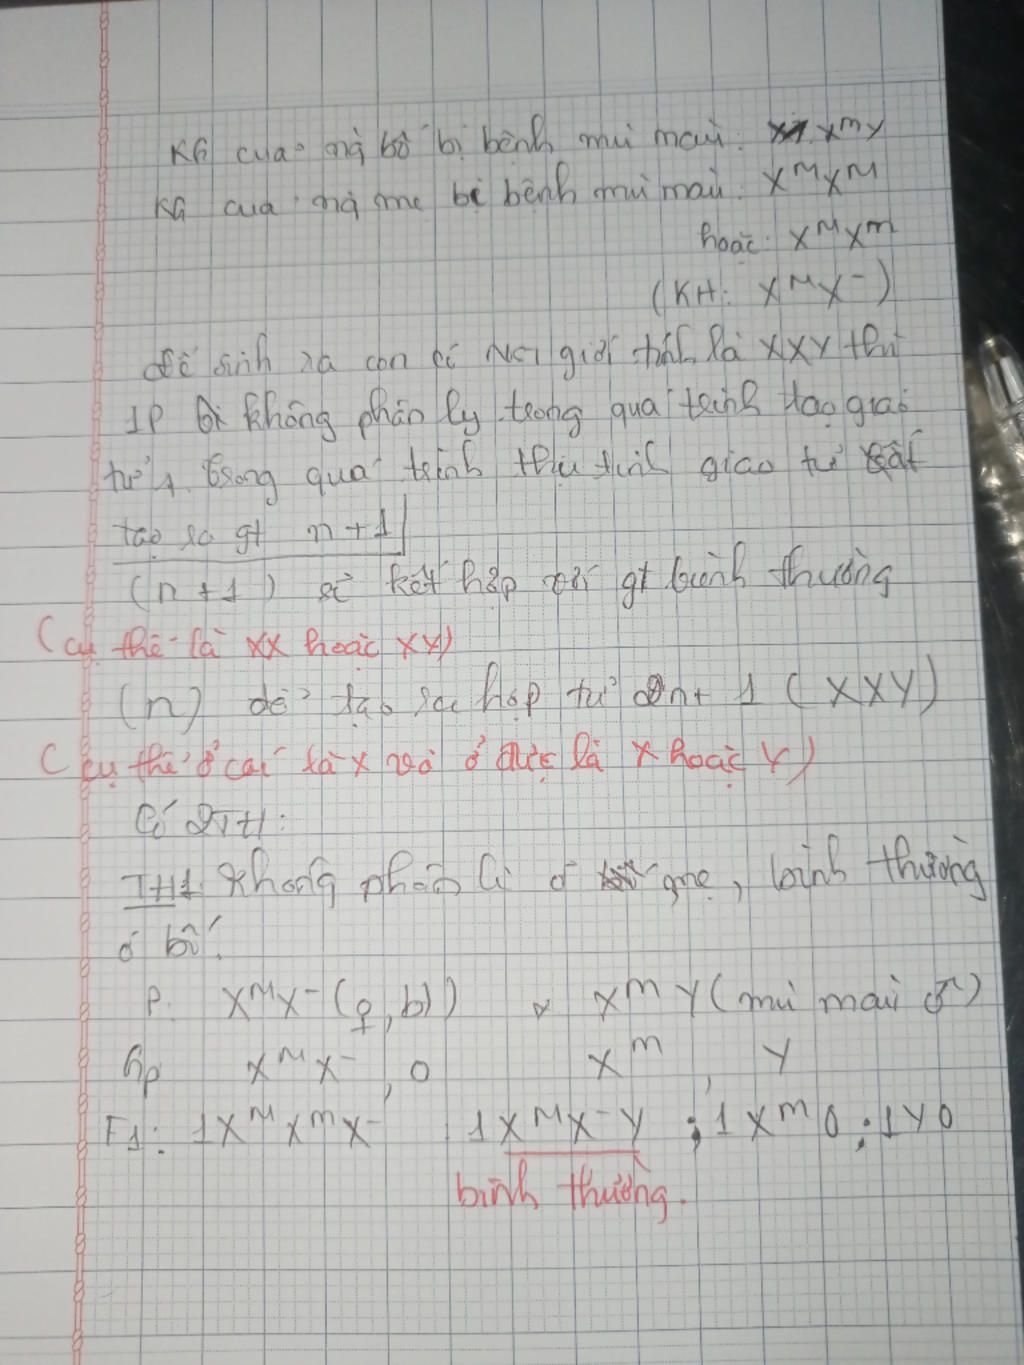 KG của mà bố bị bệnh mù màu: X^m Y
KG của mà mẹ bị bệnh mù màu: X^M X^M
hoặc: X^M X^m
(KH: X^M X^-)
để sinh ra con có NST giới tính là XXY thì
1P không phân ly trong quá trình tạo giao
tử, trong quá trình thụ tinh giao tử
tạo ra gt n+1
(n+1) sẽ kết hợp với gt bình thường
(cụ thể là XX hoặc XY)
(n) để tạo ra hợp tử 2n+1 (XXY)
(cụ thể ở cái là X và ở đực là X hoặc Y)
Có 2TH:
TH1: Không phân li ở mẹ, bình thường
ở bố.
P: X^M X^- (♀, bt) x X^m Y (mù màu ♂)
Gp X^M X^-, 0 X^m, Y
F1: 1X^M X^m X^- 1X^M X^- Y ; 1X^m 0 ; 1Y0
bình thường.